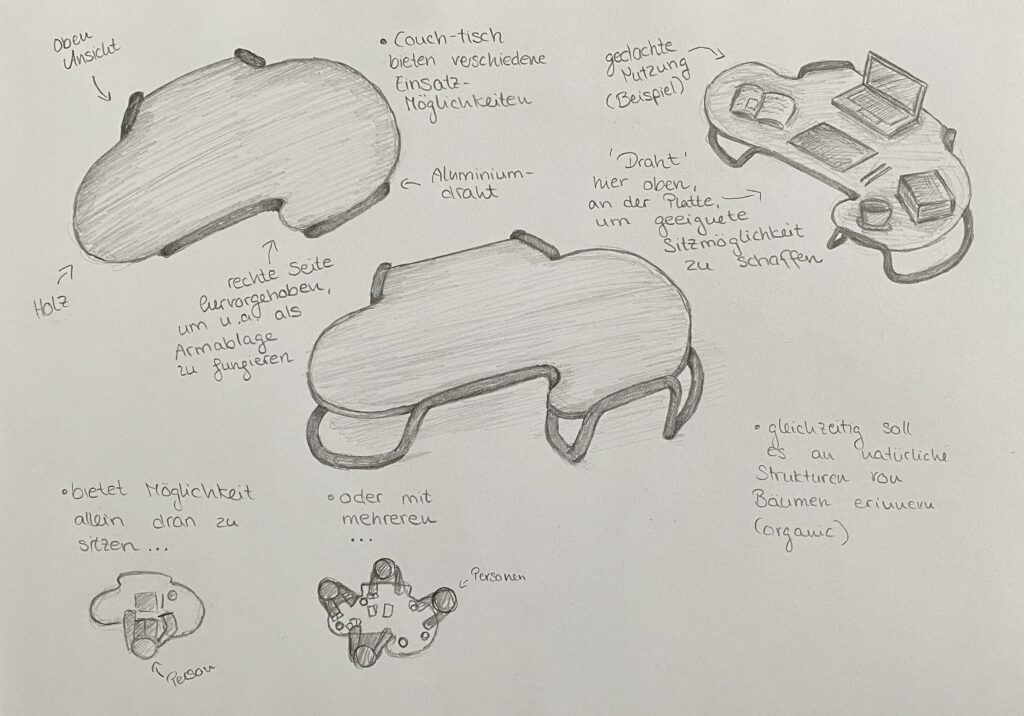 Oben
Ansicht
• Couch-tisch
bieten verschiedene
Einsatz-
Möglichkeiten
gedachte
Nutzung
(Beispiel)
Aluminium-
draht
'Draht'
hier oben,
an der Platte,
um geeignete
Sitzmöglichkeit
zu schaffen
Holz
rechte Seite
hervorgehoben,
um u.a. als
Armablage
zu fungieren
• gleichzeitig soll
es an natürliche
Strukturen von
Bäumen erinnern
(organic)
• bietet Möglichkeit
allein dran zu
sitzen ...
• oder mit
mehreren
...
Person
Personen